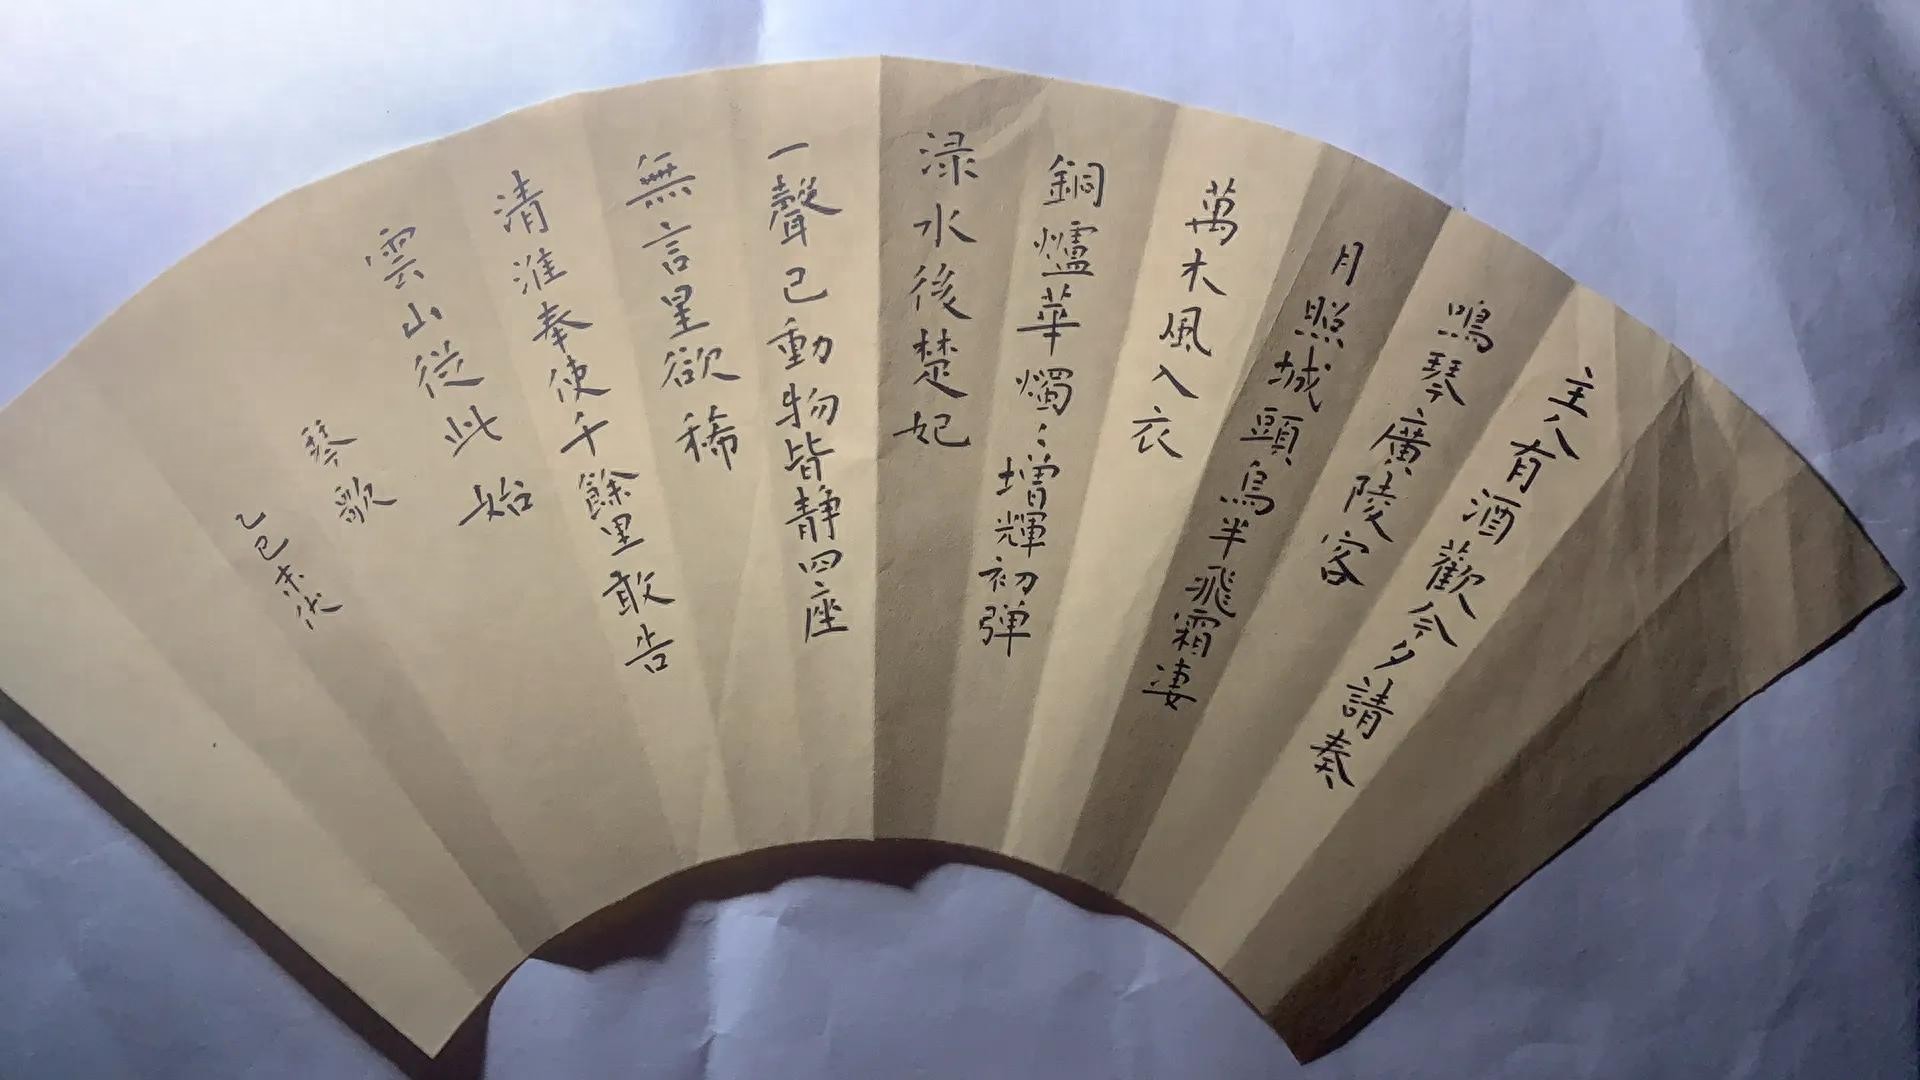 主人有酒歡今夕請奏
鳴琴廣陵客
月照城頭烏半飛霜淒
萬木風入衣
銅爐華燭〻增輝初弹
渌水後楚妃
一聲已動物皆静四座
無言星欲稀
清淮奉使千餘里敢告
雲山從此始
琴歌
乙巳末伏